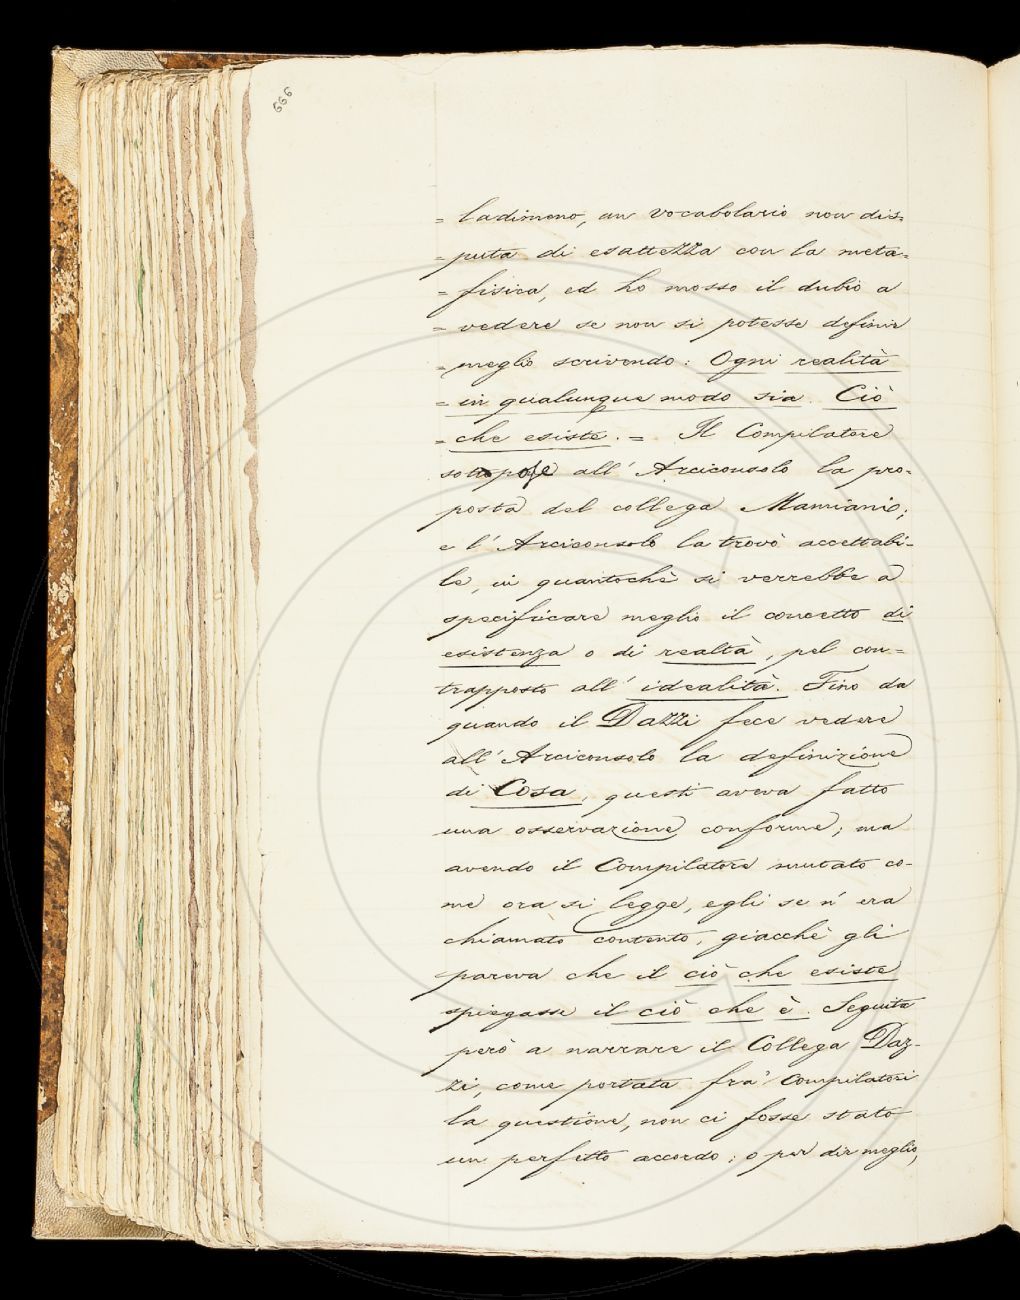 666
= ladimeno, un vocabolario non dis=
= puta di esattezza con la meta=
= fisica, ed ho mosso il dubio a
= vedere se non si potesse definir
= meglio scrivendo: Ogni realità
= in qualunque modo sia. Ciò
= che esiste. = Il Compilatore
sottopose all' Arciconsolo la pro=
posta del collega Mamiani;
e l' Arciconsolo la trovò accettabi=
le, in quantochè si verrebbe a
specificare meglio il concetto di
esistenza o di realtà, pel con=
trapposto all' idealità. Fino da
quando il Dazzi fece vedere
all' Arciconsolo la definizione
di Cosa, questi aveva fatto
una osservazione conforme; ma
avendo il Compilatore mutato co=
me ora si legge, egli se n' era
chiamato contento, giacchè gli
pareva che il ciò che esiste
spiegasse il ciò che è. Seguita
però a narrare il Collega Daz=
zi, come portata fra' Compilatori
la questione, non ci fosse stato
un perfetto accordo; o per dir meglio,